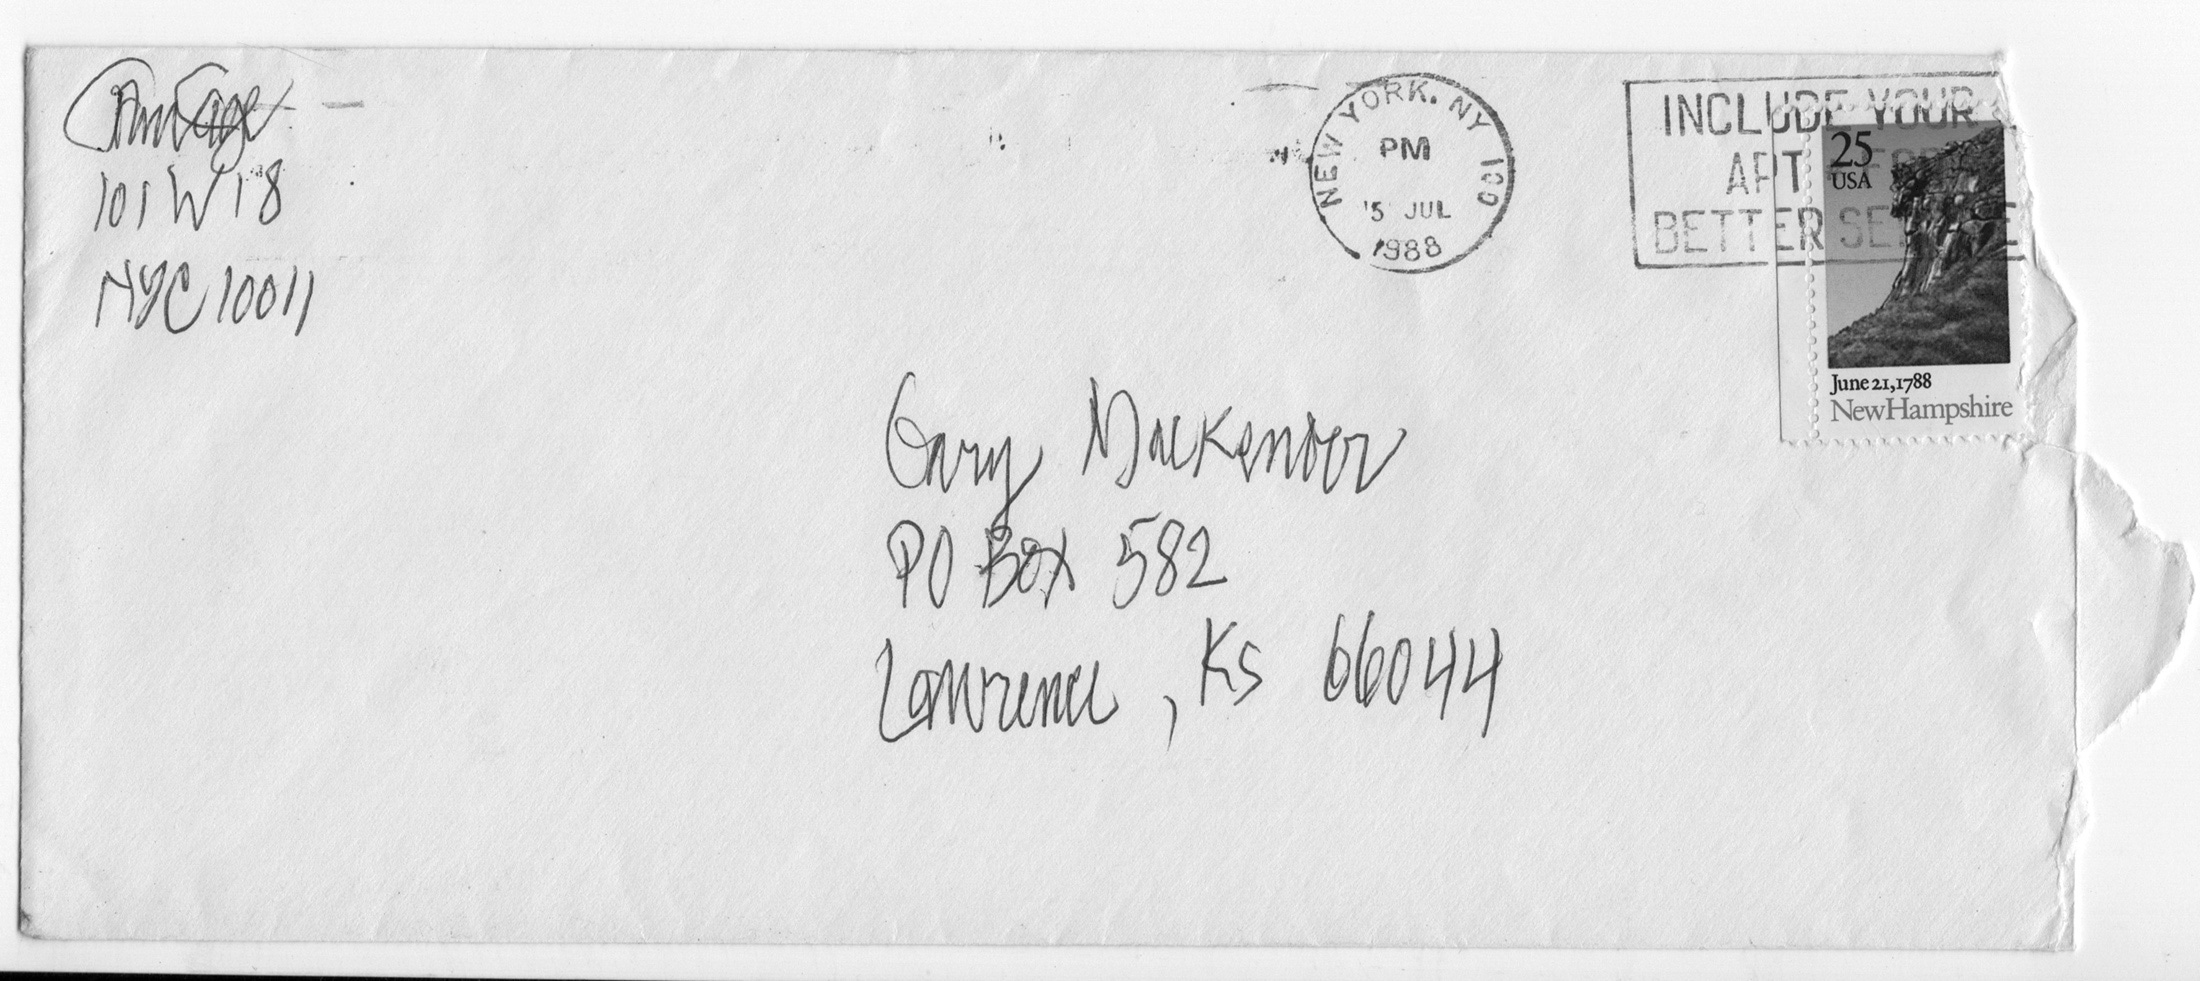 John Cage
101 W 18
NYC 10011
NEW YORK, NY 100
PM
5 JUL
1988
INCLUDE YOUR
APT
BETTER SERVICE
25
USA
June 21, 1788
New Hampshire
Gary Mackender
PO Box 582
Lawrence, Ks 66044